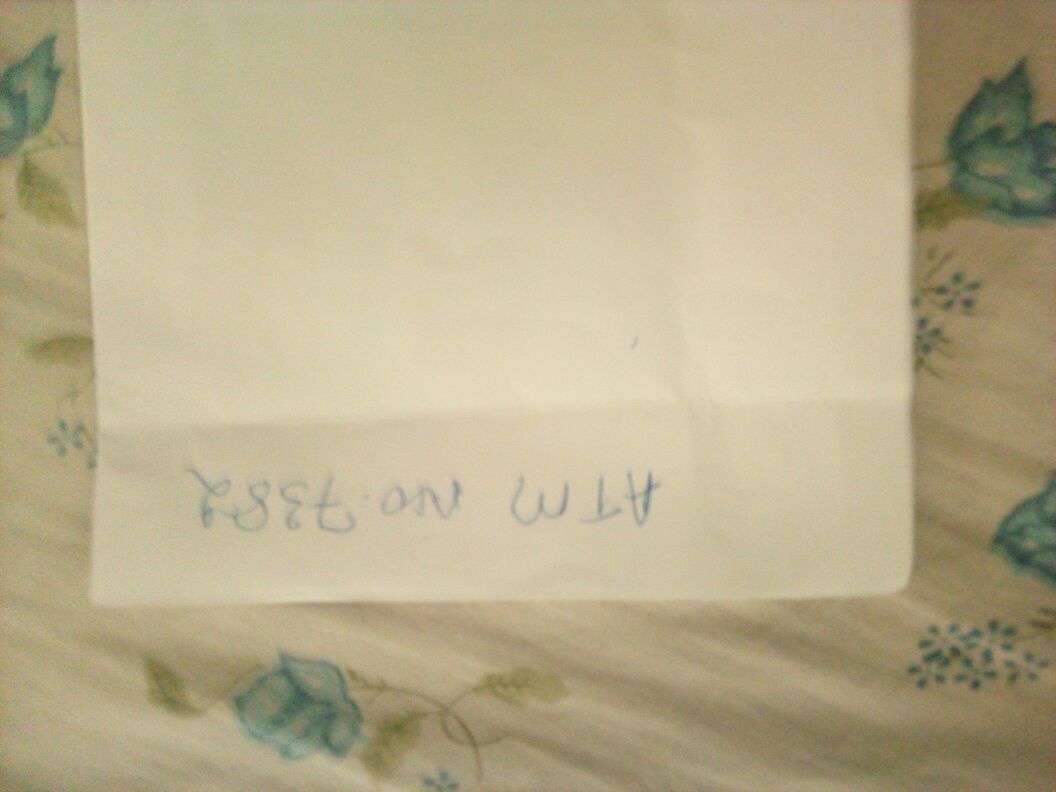 ATM NO. 7382